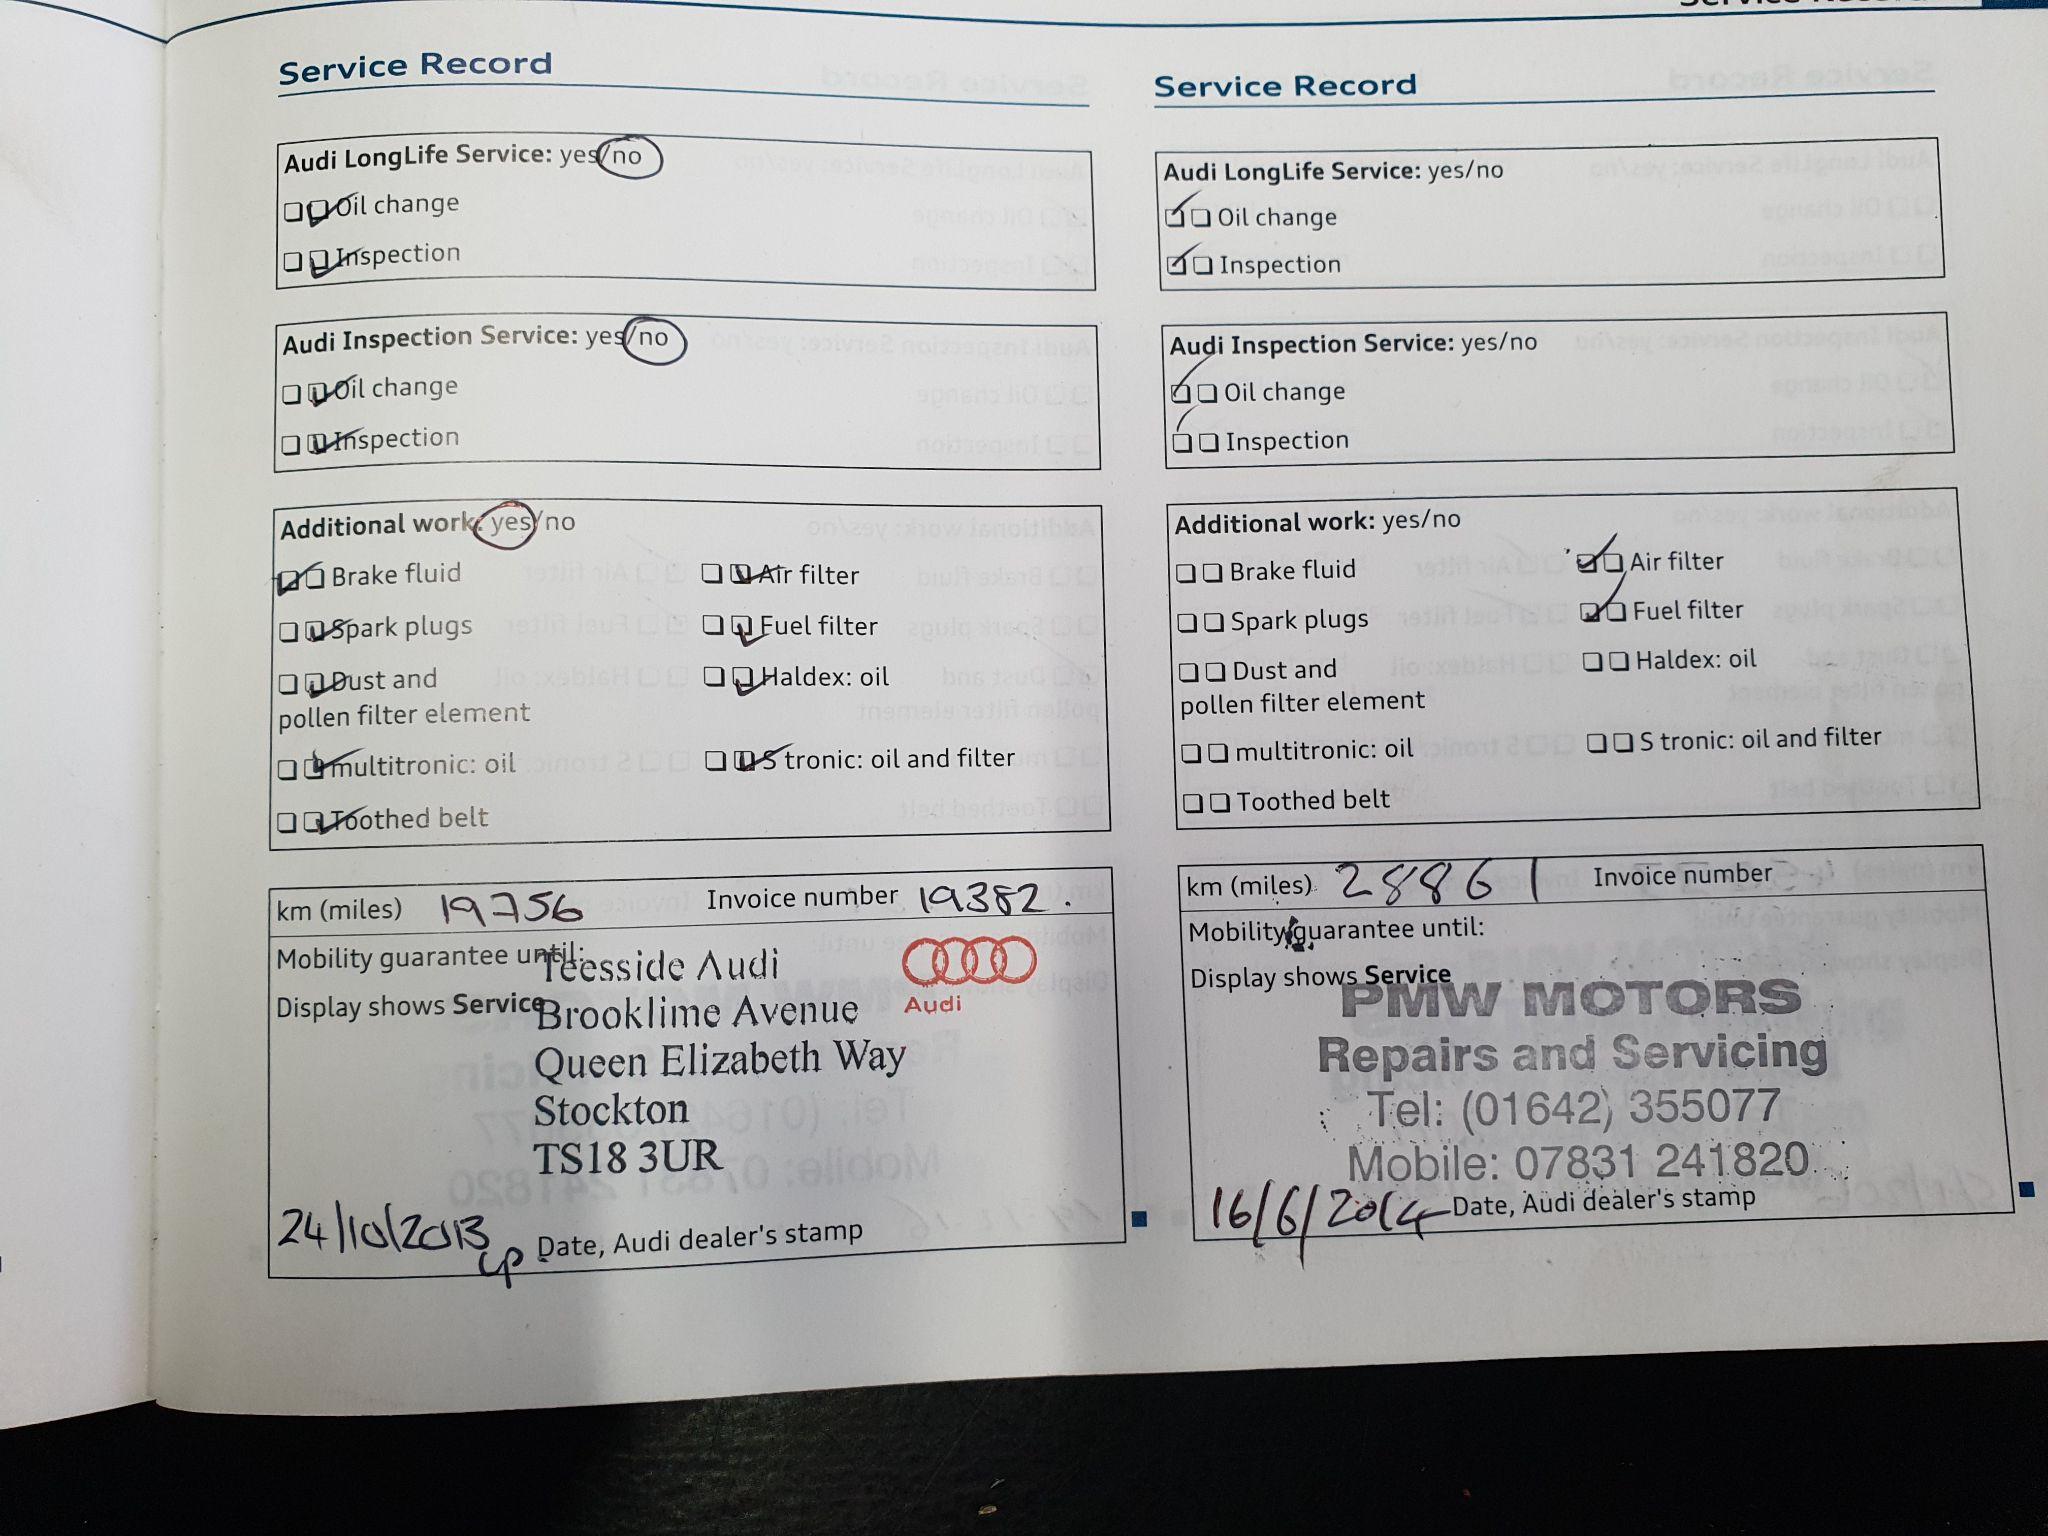 Service Record
Audi LongLife Service: yes/no
Oil change
Inspection
Audi Inspection Service: yes/no
Oil change
Inspection
Additional work: yes/no
Brake fluid
Air filter
Spark plugs
Fuel filter
Dust and
pollen filter element
Haldex: oil
multitronic: oil
S tronic: oil and filter
Toothed belt
km (miles) 19756 Invoice number 19382.
Mobility guarantee until:
Display shows Service
Teesside Audi
Brooklime Avenue
Queen Elizabeth Way
Stockton
TS18 3UR
Audi
24/10/2013
Date, Audi dealer's stamp
Service Record
Audi LongLife Service: yes/no
Oil change
Inspection
Audi Inspection Service: yes/no
Oil change
Inspection
Additional work: yes/no
Brake fluid
Air filter
Spark plugs
Fuel filter
Dust and
pollen filter element
Haldex: oil
multitronic: oil
S tronic: oil and filter
Toothed belt
km (miles) 28861 Invoice number
Mobility guarantee until:
Display shows Service
PMW MOTORS
Repairs and Servicing
Tel: (01642) 355077
Mobile: 07831 241820
16/6/2014 Date, Audi dealer's stamp